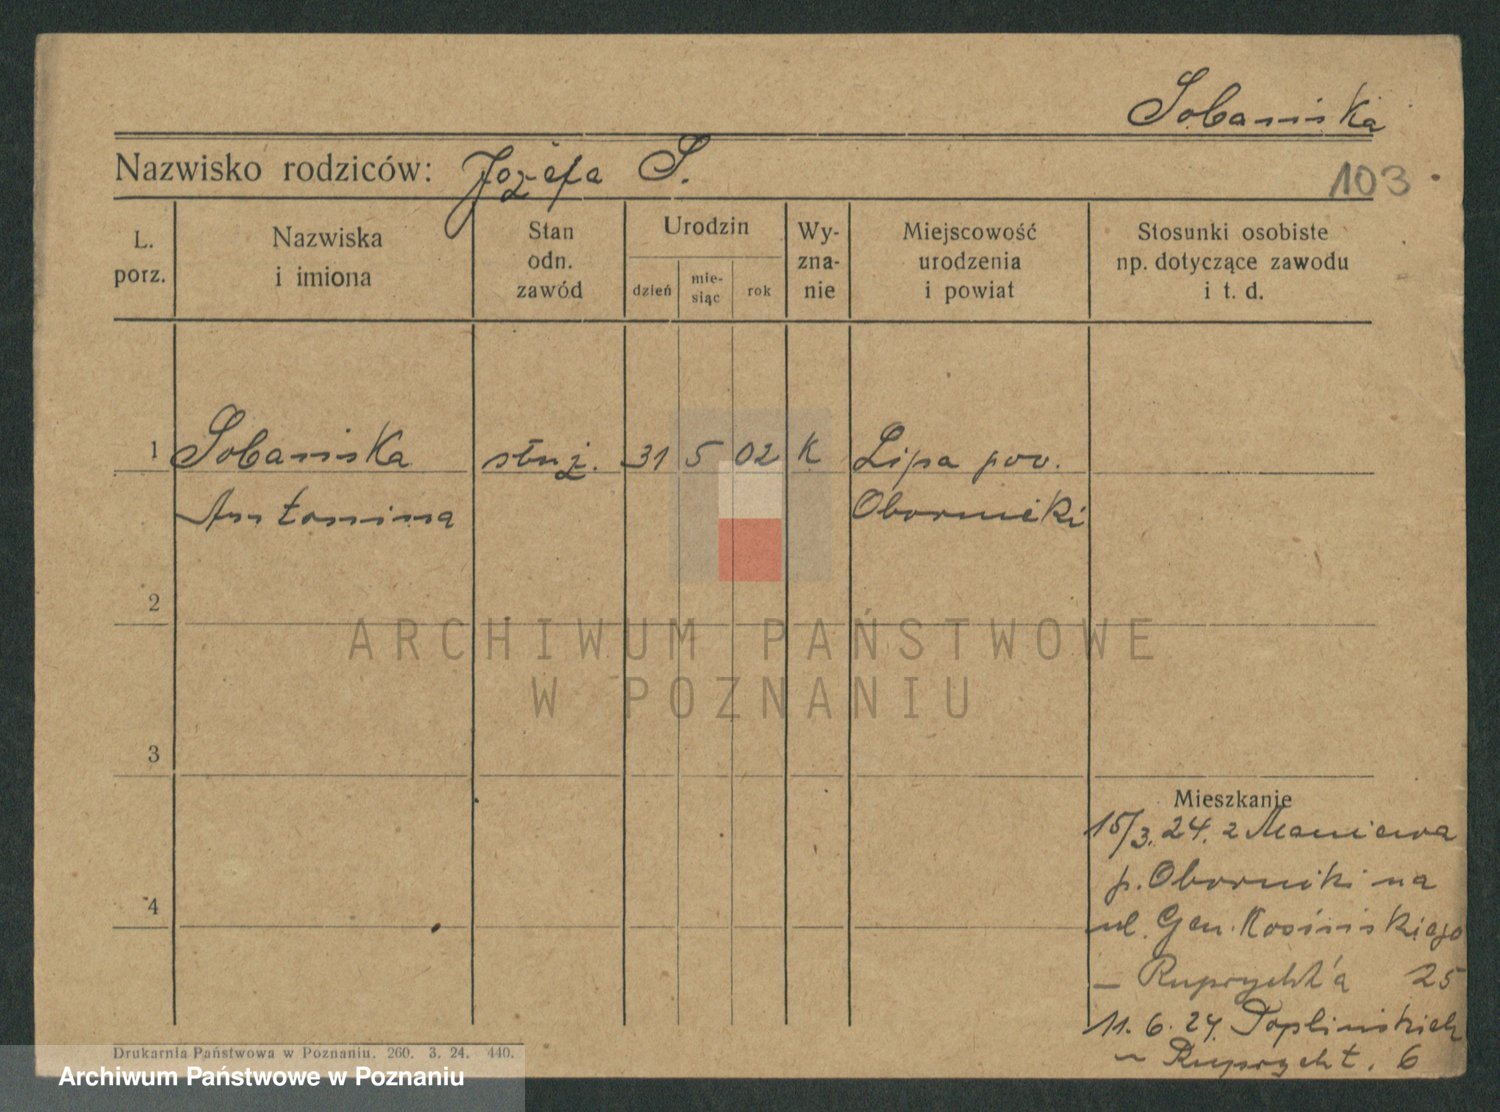 Sobańska
Nazwisko rodziców: Józefa S.
103
L. porz.
Nazwiska i imiona
Stan odn. zawód
Urodzin
dzień
mie-siąc
rok
Wy-zna-nie
Miejscowość urodzenia i powiat
Stosunki osobiste np. dotyczące zawodu i t. d.
1 Sobańska służ. 31 5 02 K Lipa pow.
Antonina Oborniki
2
ARCHIWUM PAŃSTWOWE
W POZNANIU
3
Mieszkanie
15/3. 24. z Maniewa
p. Oborniki na
4
ul. Gen. Kosińskiego
— Ruprycht'a 25
11. 6. 24. Poplińskich
— Ruprycht. 6
Drukarnia Państwowa w Poznaniu. 260. 3. 24. 440.
Archiwum Państwowe w Poznaniu